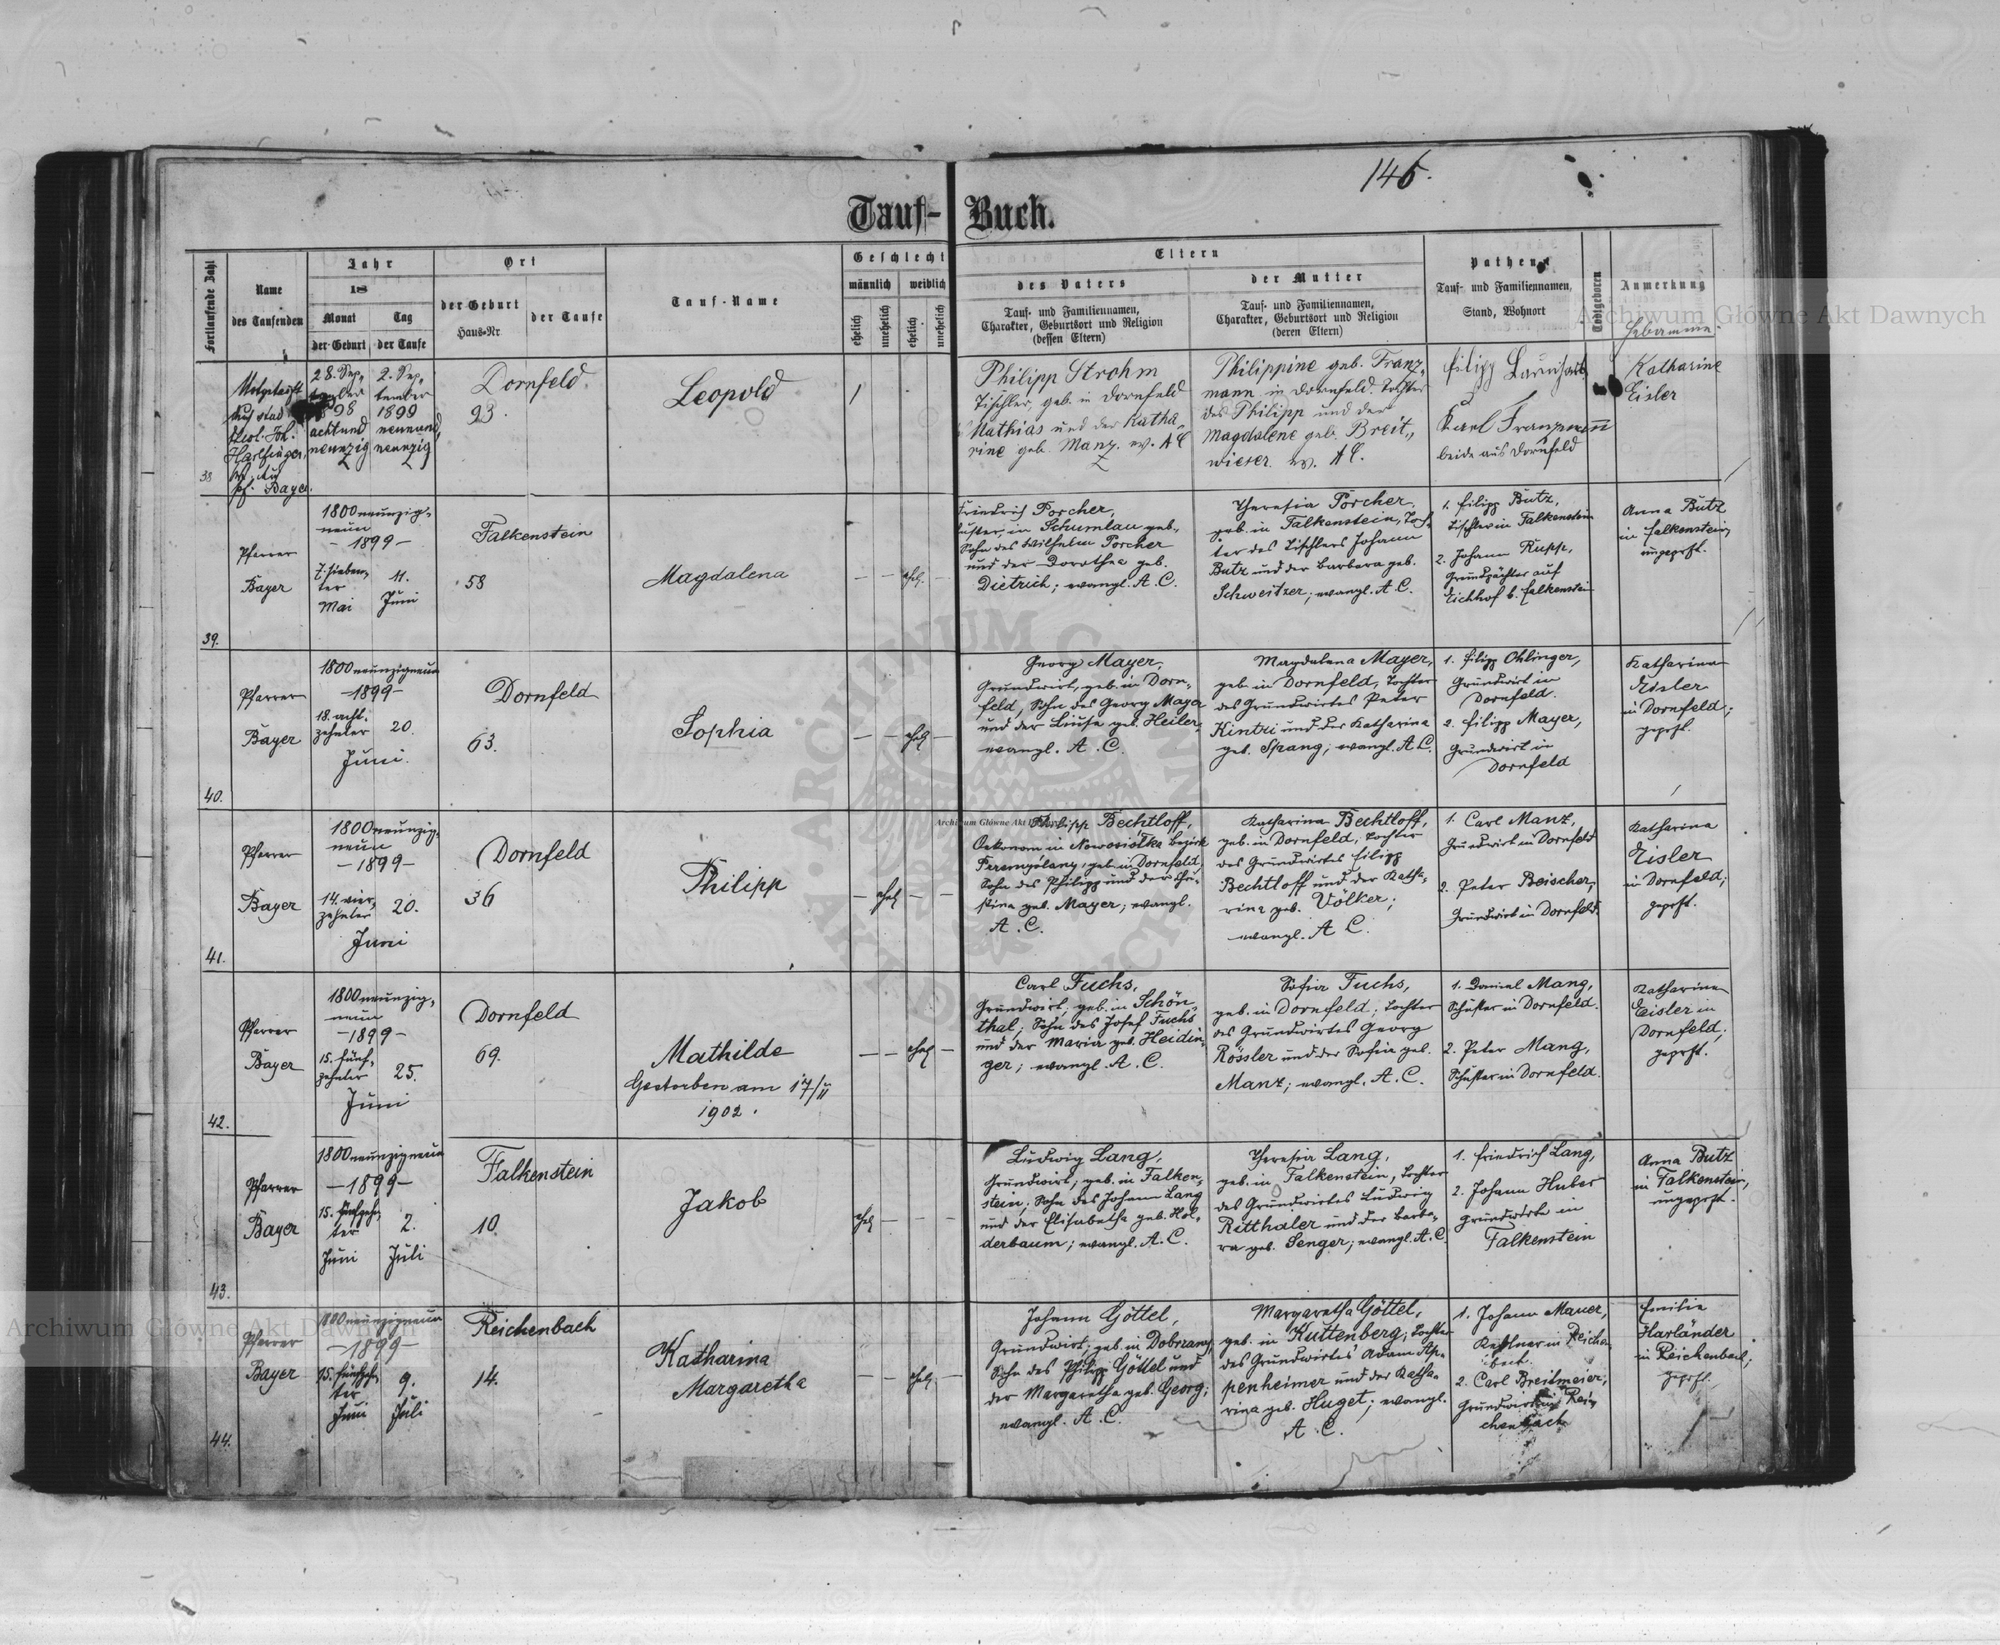 146.
Tauf-Buch.
Fortlaufende Zahl
Name
des Taufenden
Jahr
18
Monat
Tag
der Geburt
der Taufe
Ort
der Geburt
Haus-Nr.
der Taufe
Tauf-Name
Geschlecht
männlich
weiblich
ehelich
unehelich
ehelich
unehelich
Eltern
des Vaters
Tauf- und Familiennamen,
Charakter, Geburtsort und Religion
(dessen Eltern)
der Mutter
Tauf- und Familiennamen,
Charakter, Geburtsort und Religion
(deren Eltern)
Pathen
Tauf- und Familiennamen,
Stand, Wohnort
Todtgeboren
Anmerkung
Hebamme
38
Pf. Bayer.
28. Sep-
98
achtund
neunzig
2. Sep-
tember
1899
neunund
neunzig
Dornfeld
93.
Leopold
1
Philipp Strohm
Tischler, geb. in Dornfeld
Mathias und der Katha-
rine geb. Manz. ev. A C
Philippine geb. Franz-
mann in Dornfeld Tochter
des Philipp und der
Magdalene geb. Breit-
wieser. ev. A C.
Filipp
Karl Franzmann
beide aus Dornfeld
Katharine
Eisler
39.
Pfarrer
Bayer
1800neunzig-
neun
- 1899 -
7. sieben-
ter
Mai
11.
Juni
Falkenstein
58
Magdalena
— — ehel. —
Friedrich Porcher,
in Schumlau geb.,
Sohn des Wilhelm Porcher
und der Dorothea geb.
Dietrich; evangl. A. C.
Theresia Porcher,
geb. in Falkenstein, Toch-
ter des Tischlers Johann
Butz und der Barbara geb.
Schweitzer; evangl. A C.
1. Filipp Butz,
Tischler in Falkenstein
2. Johann Rupp,
Grundpächter auf
Eichhof b. Falkenstein
Anna Butz
in Falkenstein,
ungeprft.
40.
Pfarrer
Bayer
1800neunzigneun
-1899-
18. acht-
zehnter
20.
Juni.
Dornfeld
63.
Sophia
— — ehel —
Georg Mayer,
Grundwirt, geb. in Dorn-
feld, Sohn des Georg Mayer
und der Luise geb. Heiler,
evangl. A. C.
Magdalena Mayer,
geb. in Dornfeld, Tochter
des Grundwirtes Peter
Kintzi und der Katharina
geb. Spang; evangl. A C.
1. Filipp Ohlinger,
Grundwirt in
Dornfeld.
2. Filipp Mayer,
Grundwirt in
Dornfeld
Katharina
Eisler
in Dornfeld;
geprft.
41.
Pfarrer
Bayer
1800neunzig-
neun
- 1899 -
14. vier-
zehnter
20.
Juni
Dornfeld
36
Philipp
— ehel — —
Philipp Bechtloff,
Oekonom in Nowosiolka Bezirk
geb. in Dornfeld,
Sohn des Philipp und der Chri-
stina geb. Mayer; evangl.
A. C.
Katharina Bechtloff,
geb. in Dornfeld, Tochter
des Grundwirtes Filipp
Bechtloff und der Katha-
rina geb. Völker;
evangl. A C.
1. Carl Manz,
Grundwirt in Dornfeld
2. Peter Beischer,
Grundwirt in Dornfeld.
Katharina
Eisler
in Dornfeld;
geprft.
42.
Pfarrer
Bayer
1800neunzig-
neun
-1899-
15. fünf-
zehnter
25.
Juni
Dornfeld
69.
Mathilde
Gestorben am 17/II
1902.
— — ehel —
Carl Fuchs,
Grundwirt, geb. in Schön-
thal; Sohn des Josef Fuchs
und der Maria geb. Heidin-
ger; evangl. A. C.
Sofia Fuchs,
geb. in Dornfeld; Tochter
des Grundwirtes Georg
Rössler und der Sofia geb.
Manz; evangl. A. C.
1. Daniel Mang,
Schuster in Dornfeld.
2. Peter Mang,
Schuster in Dornfeld.
Katharina
Eisler in
Dornfeld;
geprft.
43.
Pfarrer
Bayer
1800neunzigneun
- 1899 -
15. fünfzehn-
ter
Juni
2.
Juli
Falkenstein
10.
Jakob
ehel — — —
Ludwig Lang,
Grundwirt, geb. in Falken-
stein, Sohn des Johann Lang
und der Elisabetha geb. Hol-
derbaum; evangl. A. C.
Theresia Lang,
geb. in Falkenstein, Tochter
des Grundwirtes Ludwig
Ritthaler und der Barba-
ra geb. Senger; evangl. A. C.
1. Friedrich Lang,
2. Johann Huber
Grundwirte in
Falkenstein
Anna Butz
in Falkenstein,
ungeprft.
44.
Pfarrer
Bayer
1800neunzigneun
- 1899 -
15. fünfzehn-
ter
Juni
9.
Juli
Reichenbach
14.
Katharina
Margaretha
— — ehel. —
Johann Göttel,
Grundwirt, geb. in Dobrzany,
Sohn des Philipp Göttel und
der Margaretha geb. Georg;
evangl. A. C.
Margaretha Göttel,
geb. in Kuttenberg, Tochter
des Grundwirtes Adam Ap-
penheimer und der Katha-
rina geb. Huget; evangl.
A. C.
1. Johann Mauer,
in Reichen-
bach.
2. Carl Breitmeier,
Grundwirt in Rei-
chenbach
Emilia
Harländer
in Reichenbach;
geprft.
Archiwum Główne Akt Dawnych
Archiwum Główne Akt Dawnych